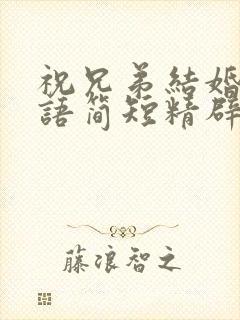 祝兄弟結婚
語简短精辟
藤浪智之